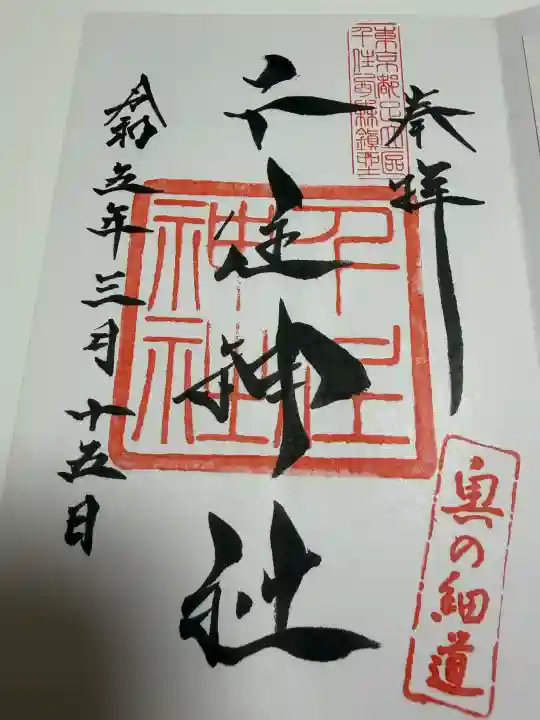 奉拝
東京都足立區
千住
千住神社
千住
神社
令和五年三月十五日
奥の細道